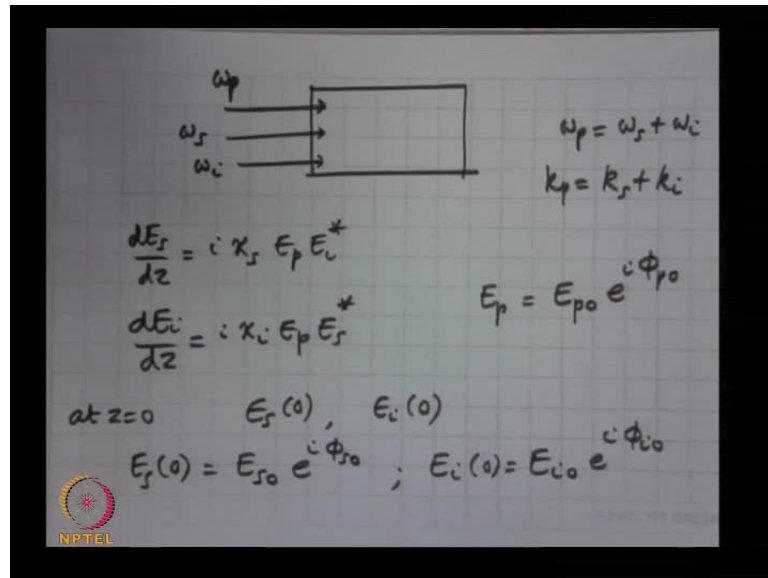 ωp
ωs
ωi
ωp = ωs + ωi
kp = ks + ki
dEs/dz = i κs Ep Ei*
dEi/dz = i κi Ep Es*
Ep = Ep0 e^{iϕp0}
at z=0 Es(0), Ei(0)
Es(0) = Es0 e^{iϕs0} ; Ei(0) = Ei0 e^{iϕi0}
NPTEL